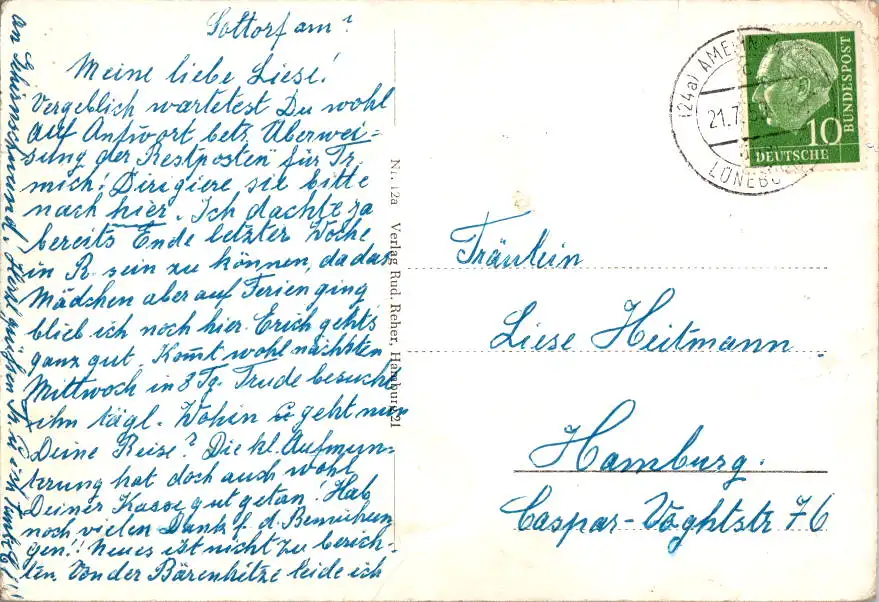 Soltorf am ?
Meine liebe Liese!
Vergeblich wartetest Du wohl
auf Antwort betz. Überwei-
sung der Restposten für Tr.
mich! Dirigiere sie bitte
nach hier. Ich dachte ja
bereits Ende letzter Woche
in R. sein zu können, da das
Mädchen aber auf Ferien ging
blieb ich noch hier. Erich gehts
ganz gut. Komt wohl nächsten
Mittwoch in 8 Tg. Trude besucht
ihn tägl. Wohin geht nun
Deine Reise? Die kl. Aufmun-
terung hat doch auch wohl
Deiner Kasse gut getan! Hab
noch vielen Dank f. d. Bemühun
gen!! Neues ist nicht zu berich-
ten. Von der Bärenhitze leide ich
an Gehirnschwund. Herzl. Grüßen
Nr. 12a Verlag Rud. Reher, Hamburg 21
(24a) AMELINGH
21.7.58
LÜNEBU
10
DEUTSCHE
BUNDESPOST
Fräulein
Liese Heitmann
Hamburg.
Caspar-Voghtstr 76